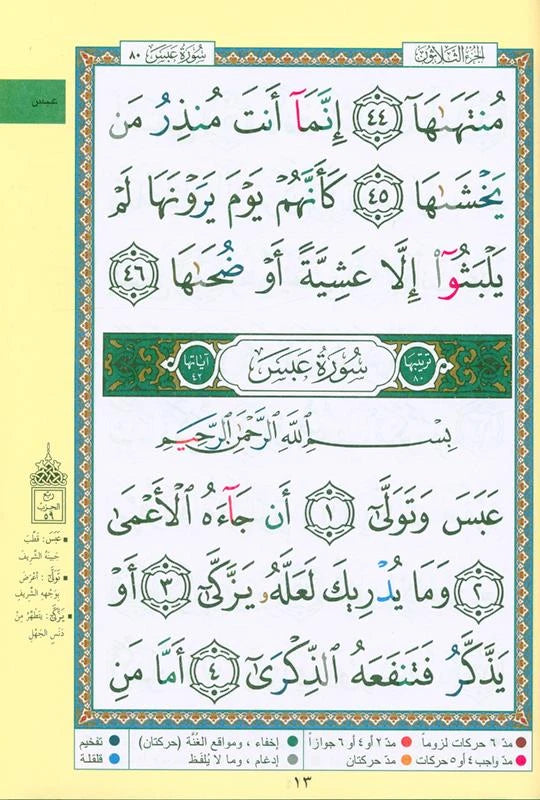 الجزء الثلاثون
سُورَةُ عَبَسَ ٨٠
عبس
مُنتَهَىٰهَآ ٤٤ إِنَّمَآ أَنتَ مُنذِرُ مَن
يَخْشَىٰهَا ٤٥ كَأَنَّهُمْ يَوْمَ يَرَوْنَهَا لَمْ
يَلْبَثُوٓا۟ إِلَّا عَشِيَّةً أَوْ ضُحَىٰهَا ٤٦
ترتيبها ٨٠ سُورَةُ عَبَسَ آياتها ٤٢
بِسْمِ ٱللَّهِ ٱلرَّحْمَٰنِ ٱلرَّحِيمِ
عَبَسَ وَتَوَلَّىٰٓ ١ أَن جَآءَهُ ٱلْأَعْمَىٰ
٢ وَمَا يُدْرِيكَ لَعَلَّهُۥ يَزَّكَّىٰٓ ٣ أَوْ
يَذَّكَّرُ فَتَنفَعَهُ ٱلذِّكْرَىٰٓ ٤ أَمَّا مَنِ
ربع
الحزب
٥٩
عَبَسَ: قَطَّبَ
جَبِينَهُ الشَّرِيفَ
تَوَلَّىٰٓ: أعْرَضَ
بِوَجْهِهِ الشَّرِيفِ
يَزَّكَّىٰٓ: يَتَطَهَّرُ مِنْ
دَنَسِ الجَهْلِ
مدّ ٦ حركات لزوماً مدّ ٢ أو ٤ أو ٦ جوازاً إخفاء ، ومواقع الغُنَّة (حركتان) تفخيم
مدّ واجب ٤ أو ٥ حركات مدّ حركتان إدغام ، وما لا يُلفَظ قلقلة
١٣